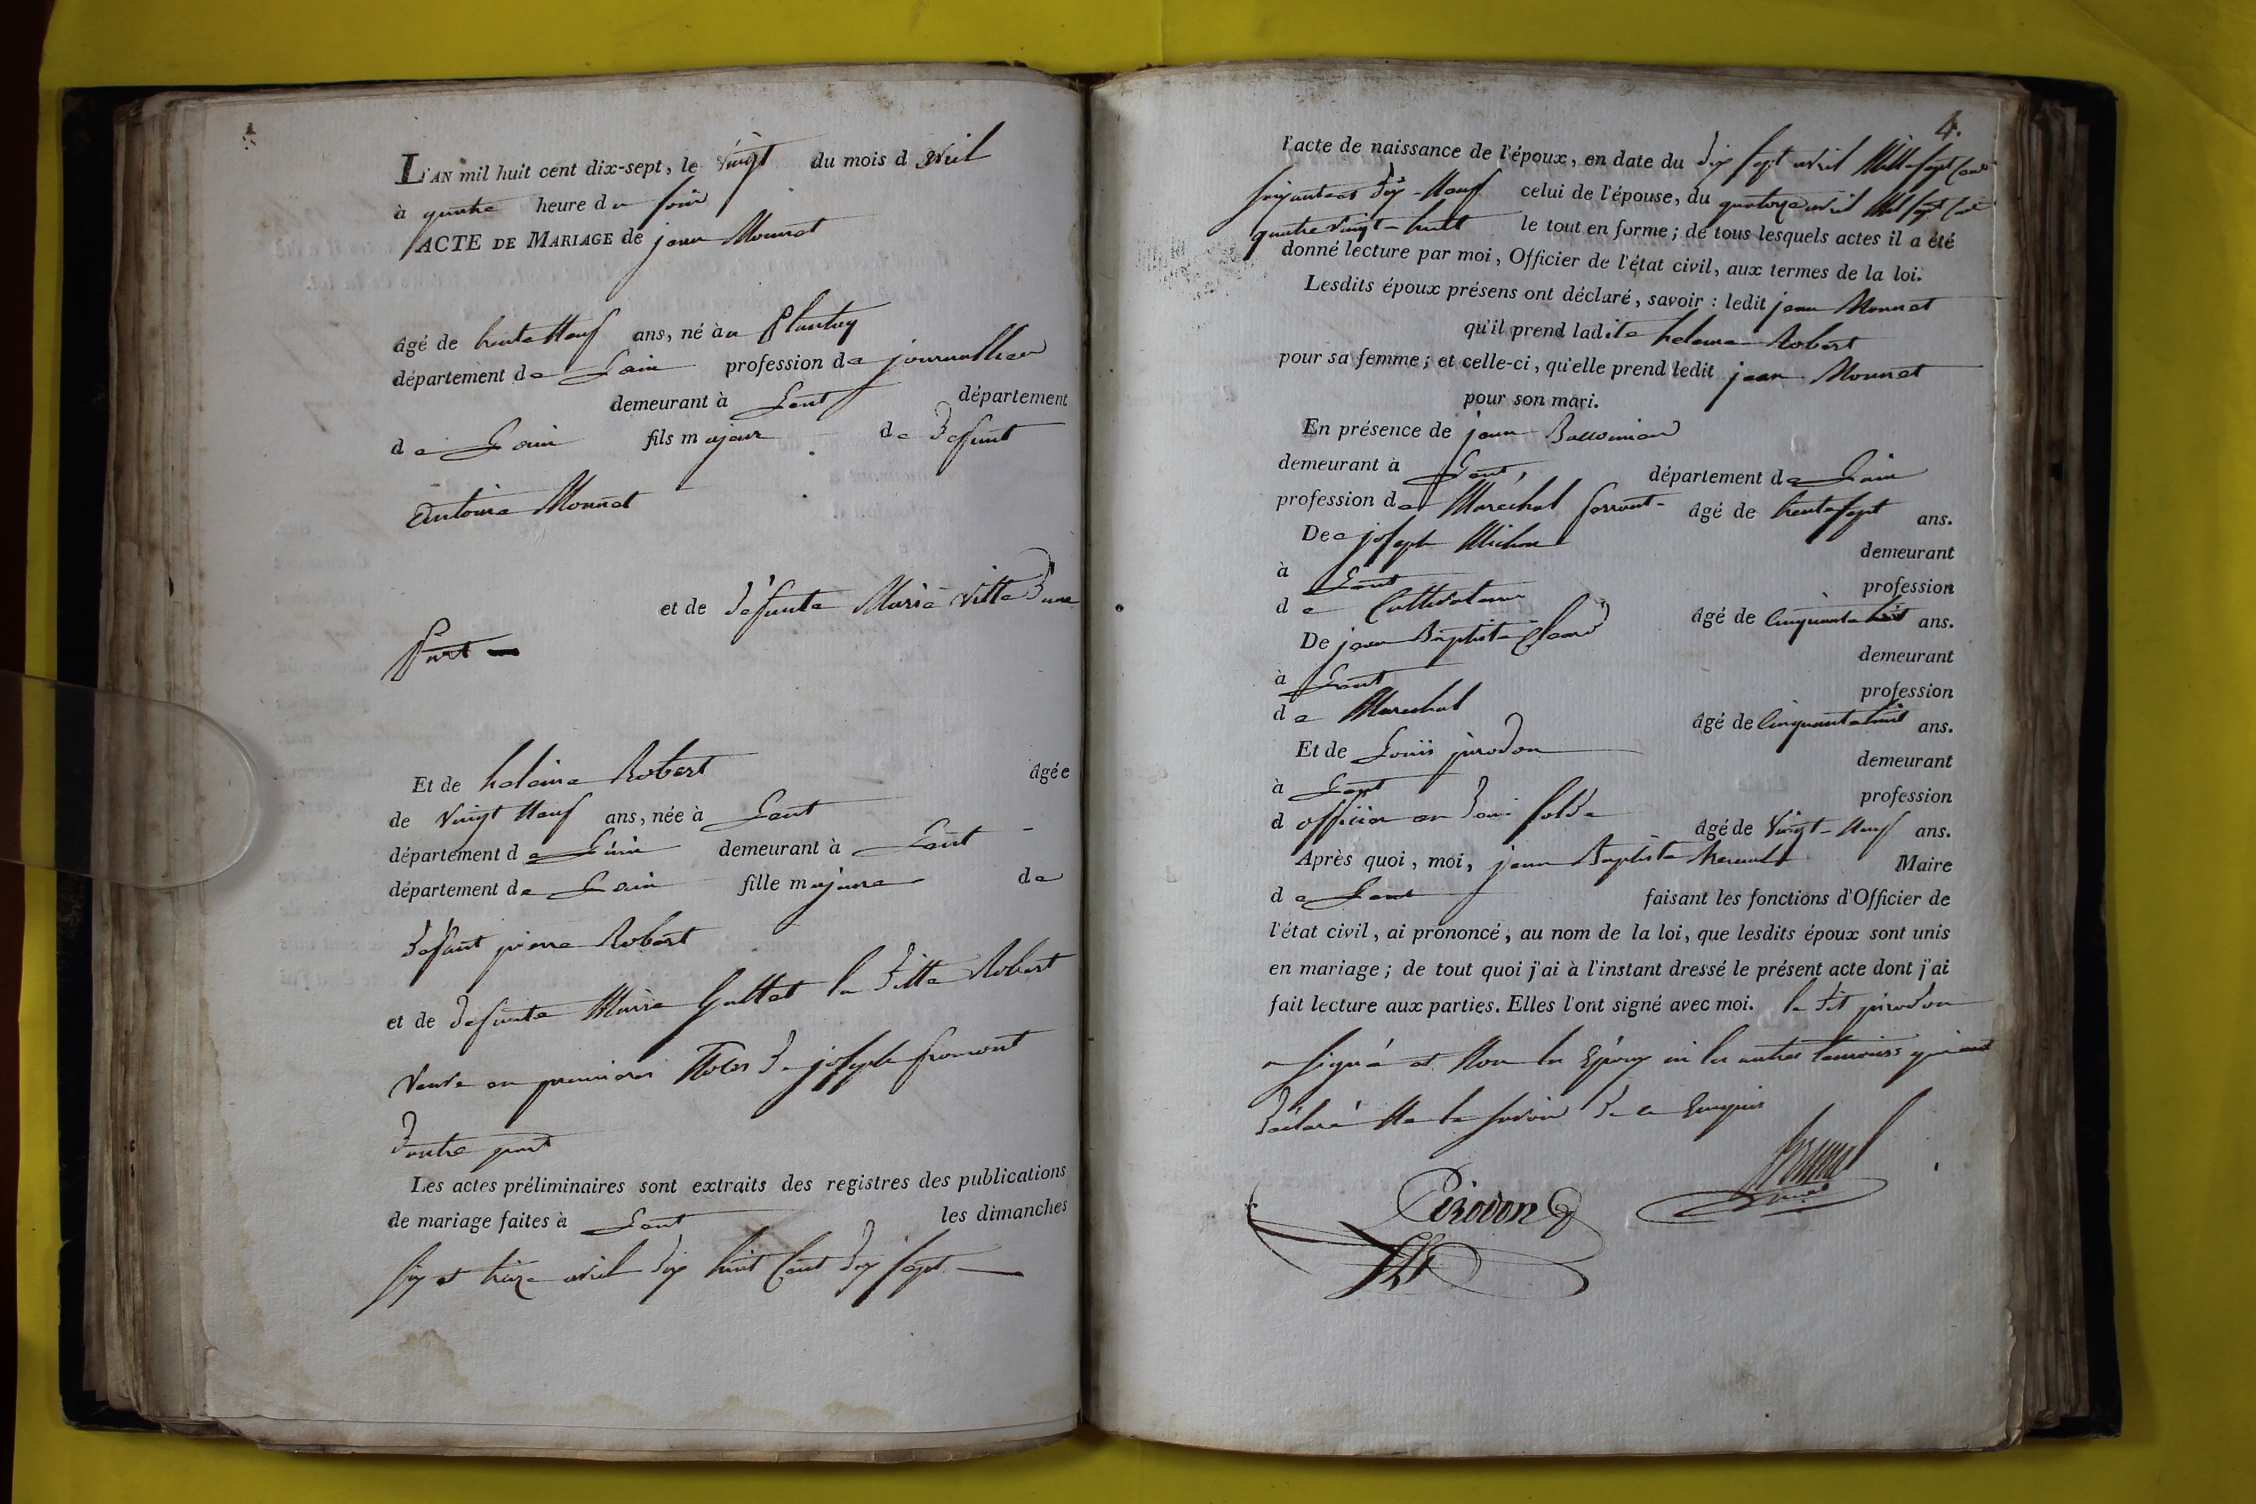 L'AN mil huit cent dix-sept, le vingt du mois d avril
à quatre heure du soir
ACTE DE MARIAGE de jean Monnet
âgé de trente Neuf ans, né au plantey
département de Lain profession de journallier
demeurant à Lent département
de Lain fils majeur de defunt
Antoine Monnet
et de defunte Marie vitte d'une
part
Et de helaine Robert âgée
de vingt Neuf ans, née à Lent
département de Lain demeurant à Lent
département de Lain fille majeure de
defunt pierre Robert
et de defunte Marie Guttet la ditte Robert
veuve en premieres Noces de joseph fromont
dautre part
Les actes préliminaires sont extraits des registres des publications
de mariage faites à Lent les dimanches
six et treize avril dix huit Cent dix sept
4.
l'acte de naissance de l'époux, en date du dix sept avril Mille sept Cent
soixantes dix-Neuf celui de l'épouse, du quatorze avril Mil sept Cent
quatre vingt-huit le tout en forme; de tous lesquels actes il a été
donné lecture par moi, Officier de l'état civil, aux termes de la loi.
Lesdits époux présens ont déclaré, savoir: ledit jean Monnet
qu'il prend ladite helaine Robert
pour sa femme; et celle-ci, qu'elle prend ledit jean Monnet
pour son mari.
En présence de jean
demeurant à Lent, département de Lain
profession de Maréchal ferrant âgé de trente sept ans.
De joseph Michon demeurant
à Lent profession
de Cultivateur âgé de Cinquante huit ans.
De jean Baptiste demeurant
à Lent profession
de Marechal âgé de Cinquante huit ans.
Et de Louis pirodon demeurant
à Lent profession
d officier en demi solde âgé de vingt-Neuf ans.
Après quoi, moi, jean Baptiste Maire
de Lent faisant les fonctions d'Officier de
l'état civil, ai prononcé, au nom de la loi, que lesdits époux sont unis
en mariage; de tout quoi j'ai à l'instant dressé le présent acte dont j'ai
fait lecture aux parties. Elles l'ont signé avec moi. le dit pirodon
a signé et Non les Epoux ni les autres temoins qui ont
déclaré Ne le savoir de ce Enquis
Pirodon